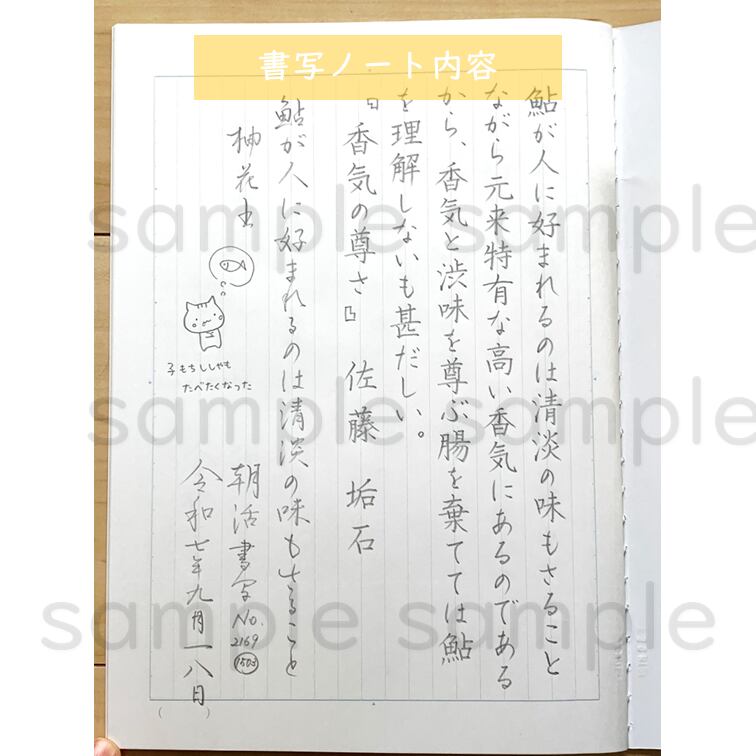 書写ノート内容
鮎が人に好まれるのは清淡の味もさること
ながら元来特有な高い香気にあるのである
から、香気と渋味を尊ぶ腸を棄てては鮎
を理解しないも甚だしい。
『香気の尊さ』 佐藤 垢石
鮎が人に好まれるのは清淡の味もさること
柚花
子もちししゃも
たべたくなった
朝活書写No.
2169
1503
令和七年九月一八日
sample sample
sample sample
sample sample